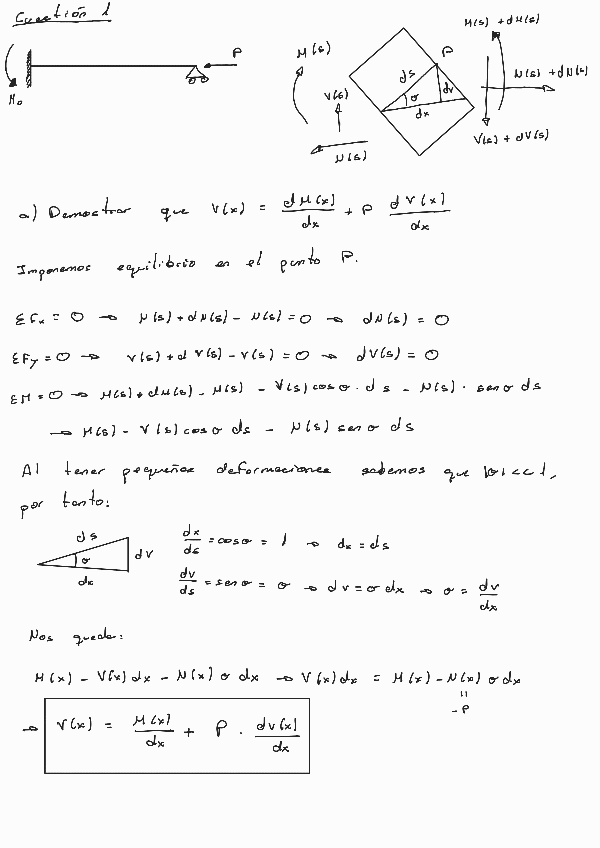 Cuestión 1
M(s) + dM(s)
P
M(s)
P
ds
V(s)
dv
N(s) + dN(s)
M₀
θ
dx
V(s) + dV(s)
N(s)
a) Demostrar que V(x) = dM(x)/dx + P dV(x)/dx
Imponemos equilibrio en el punto P.
ΣFx = 0 → N(s) + dN(s) - N(s) = 0 → dN(s) = 0
ΣFy = 0 → V(s) + dV(s) - V(s) = 0 → dV(s) = 0
ΣM = 0 → M(s) + dM(s) - M(s) - V(s) cosθ · ds - N(s) · senθ ds
→ M(s) - V(s) cosθ ds - N(s) senθ ds
Al tener pequeñas deformaciones sabemos que |θ| << 1,
por tanto:
ds
dv
θ
dx
dx/ds = cosθ = 1 → dx = ds
dv/ds = senθ = θ → dv = θ dx → θ = dv/dx
Nos queda:
M(x) - V(x) dx - N(x) θ dx → V(x) dx = M(x) - N(x) θ dx
=
-P
→ V(x) = M(x)/dx + P · dv(x)/dx